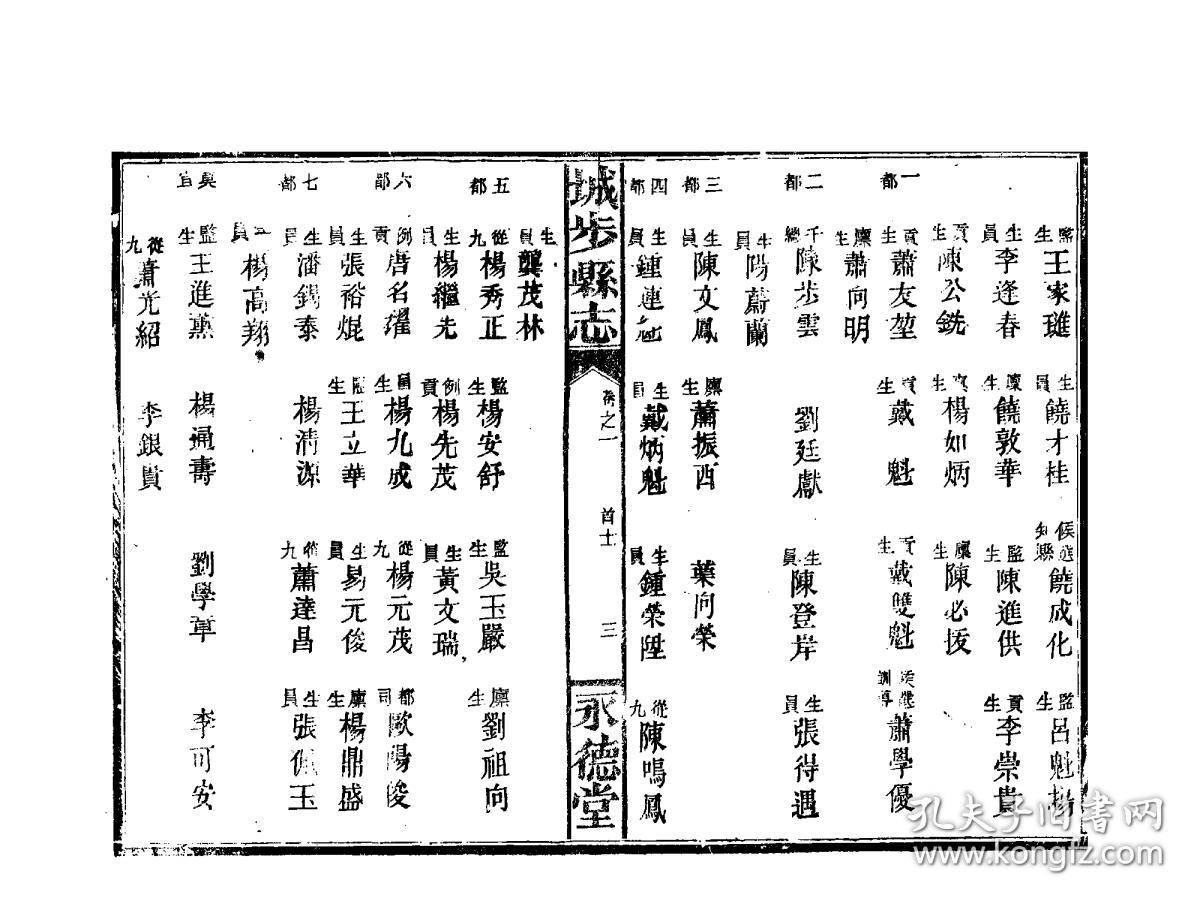 監生王家璡 生員饒才桂 候選知縣饒成化 監生呂魁揚
生員李逢春 廩生饒敦華 監生陳進供 貢生李崇貴
貢生陳公銑 貢生楊如炳 廩生陳必拔
一都 貢生蕭友堃 貢生戴魁 貢生戴雙魁 候選訓導蕭學優
廩生蕭向明
二都 千總陳步雲 劉廷獻 生員陳登岸 生員張得遇
生員陽蔚蘭
三都 生員陳文鳳 廩生蕭振西 葉向榮
四都 生員鍾連 生員戴炳魁 生員鍾榮陞 從九陳鳴鳳
城步縣志 卷之一 首士 三 永德堂
生員龔茂林
五都 從九楊秀正 監生楊安舒 監生吳玉嚴 廩生劉祖向
生員楊繼先 例貢楊先茂 生員黃文瑞
六都 例貢唐名濯 生員楊九成 從九楊元茂 都司歐陽俊
生員張裕焜 監生王立華 生員易元俊 廩生楊鼎盛
七都 生員潘錫泰 楊清源 從九蕭達昌 生員張佩玉
員楊高翔
莫宜 監生王進薰 楊通壽 劉學章 李可安
從九蕭光紹 李銀貴
孔夫子旧书网
www.kongfz.com